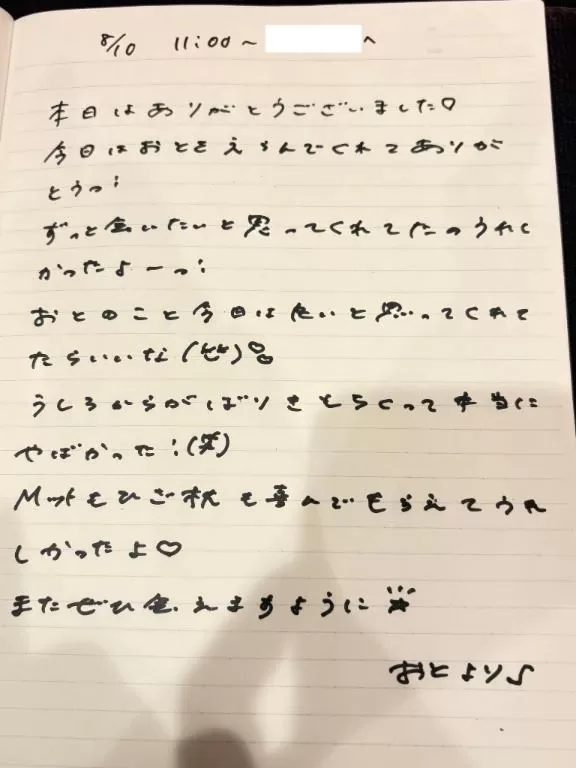 8/10 11:00～ へ
本日はありがとうございました♡
今日はおとをえらんでくれてありが
とうっ！
ずっと会いたいと思ってくれてたのうれし
かったよーっ！
おとのこと今日は良いと思ってくれて
たらいいな(笑)
うしろからがばりきもちくって本当に
やばかった！(笑)
Mットもひざ枕も喜んでもらえてうれ
しかったよ♡
またぜひ会えますように★
おとより♪